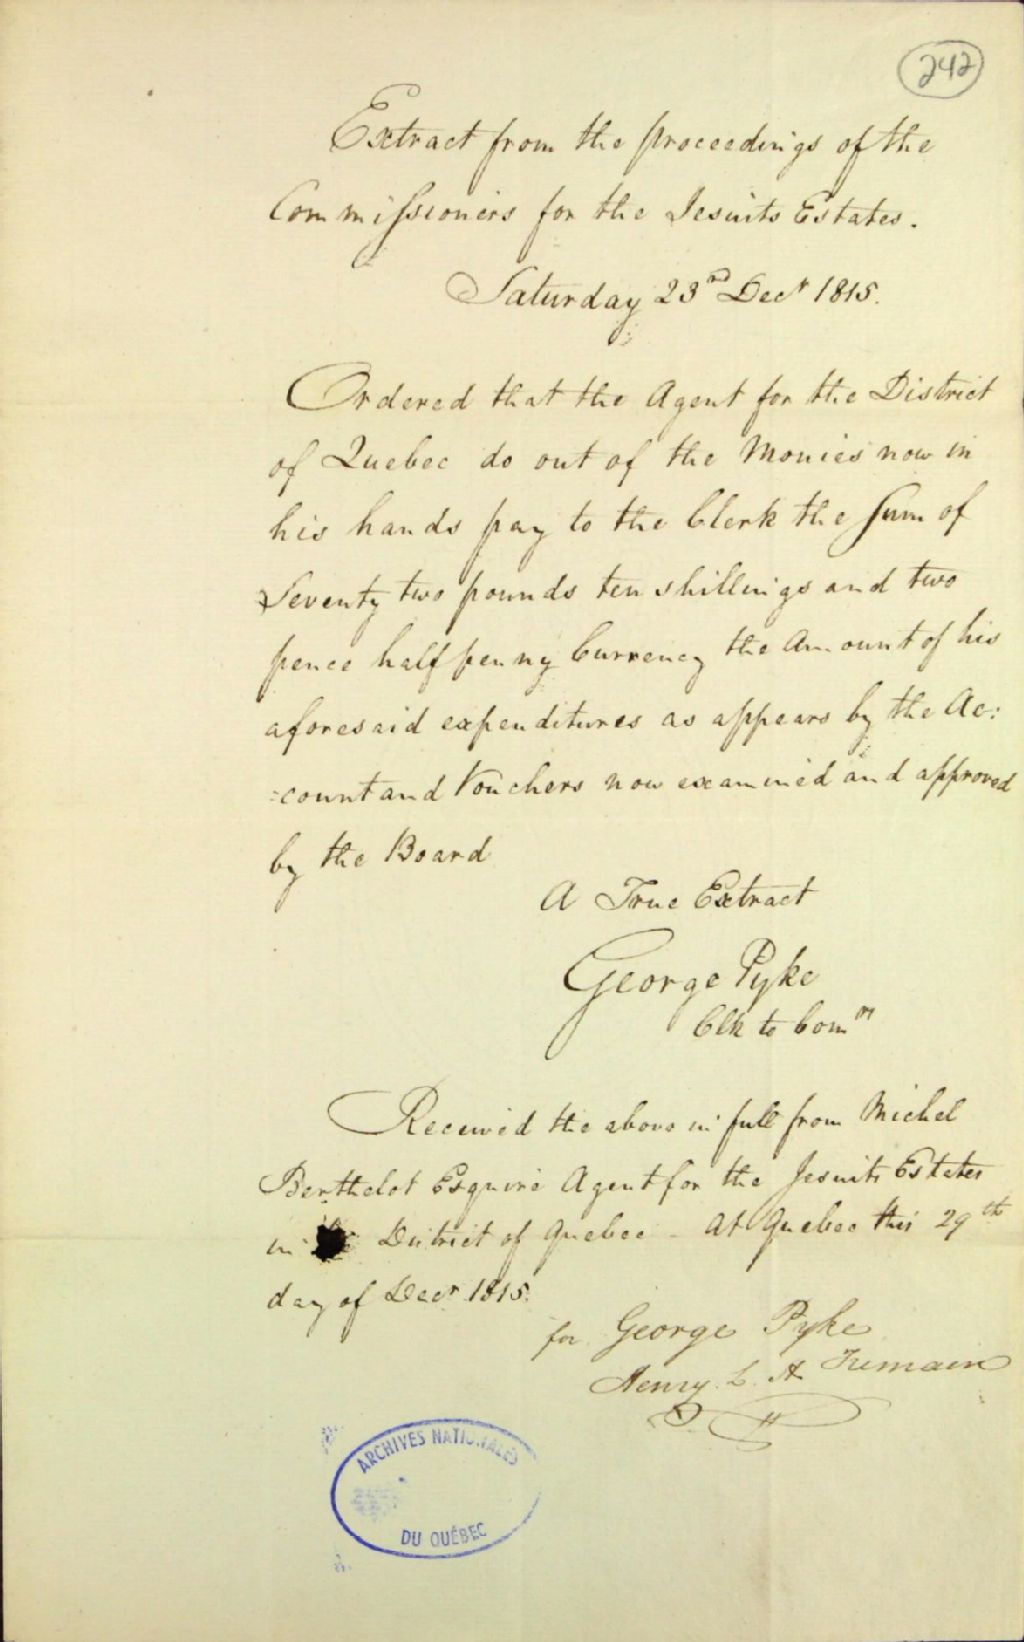 242
Extract from the proceedings of the
Commissioners for the Jesuits Estates.
Saturday 23rd Decr 1815.
Ordered that the Agent for the District
of Quebec do out of the Monies now in
his hands pay to the Clerk the Sum of
Seventy two pounds ten shillings and two
pence half penny Currency the Amount of his
aforesaid expenditures as appears by the Ac:
:count and Vouchers now examined and approved
by the Board
A True Extract
George Pyke
Clk to Comrs
Received the above in full from Michel
Berthelot Esquire Agent for the Jesuits Estates
in District of Quebec - At Quebec this 29th
day of Decr 1815.
for George Pyke
Henry L. A. Tremain
ARCHIVES NATIONALES
DU QUÉBEC